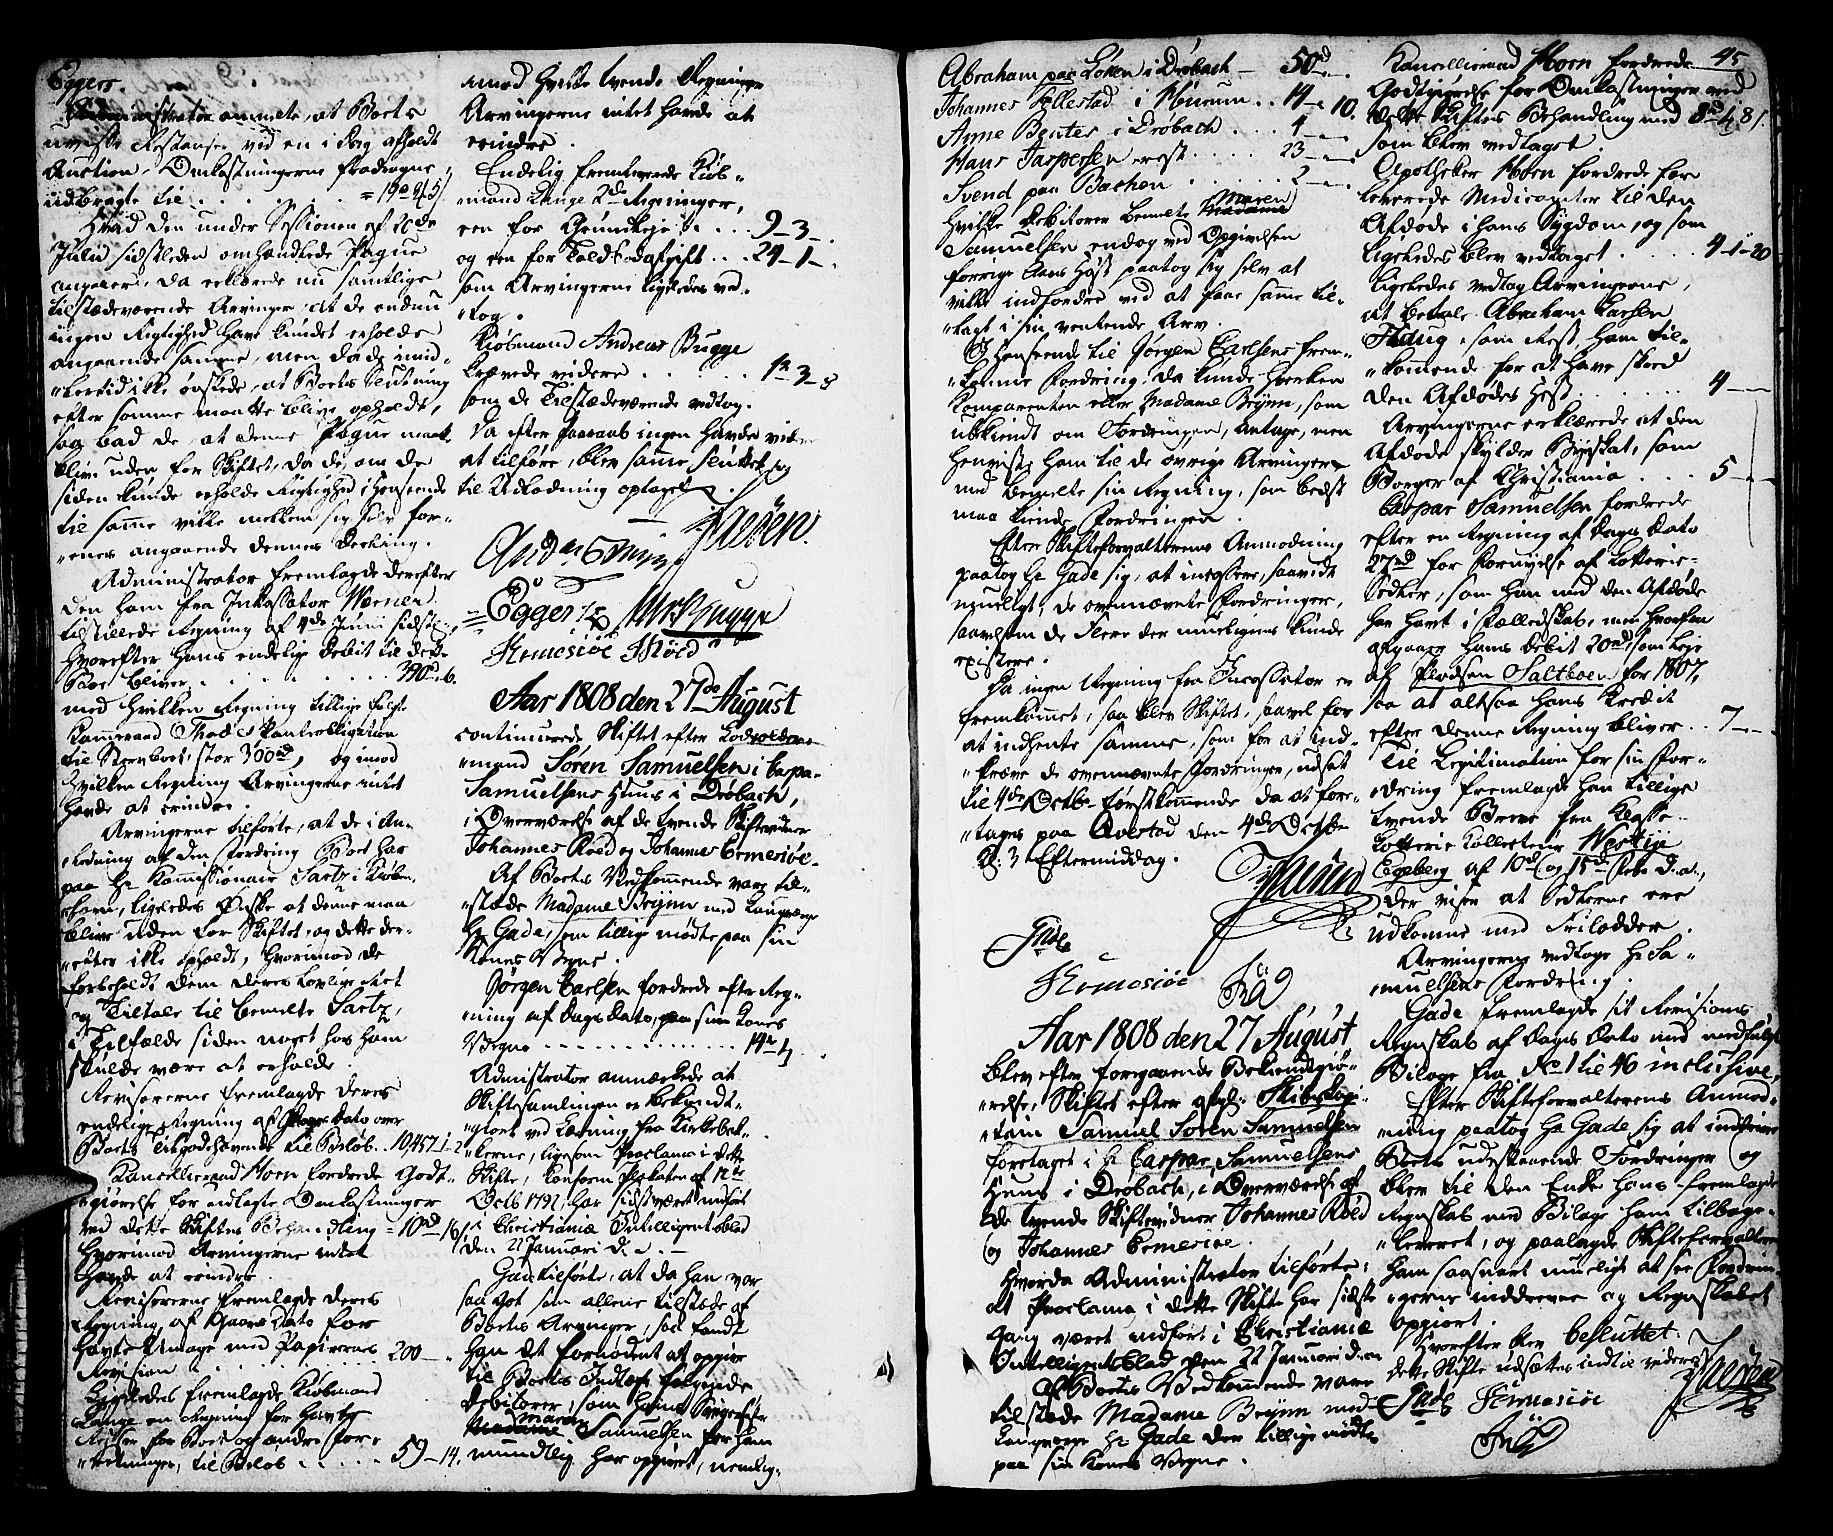 Eggers.
Administrator anmelte, at Boets
uvisse Restanser ved en i Dag afholdt
Auction, Omkostningerne fradragne,
udbragte til . . . . = 19d 2/5/
Hvad den under Sessionen af 20de
Julii sidstleden omhandlede Pague
angaaer, da erklærede nu samtlige
tilstædeværende Arvinger, at de endnu
ingen Rigtighed have kundet erholde
angaaende samme, men da de imid-
lertid ikke ønskede, at Boets Slutning
efter samme maatte blive opholdt,
saa bad de, at denne Pague maatte
blive uden for Skiftet, da de, om de
siden kunde erholde Rigtighed i Henseende
til samme ville mellem sig selv for-
enes angaaende dennes Deeling.
Administrator fremlagde derefter
den ham fra Inkassator Werner
tilstillede Regning af 4de Junii sidstl.,
hvorefter hans endelig Debit til dette
Boe bliver . . . . . . 390d. 6.
med hvilken Regning tillige fulgte
Kammerraad Thodes Panteobligation
til Sterboet, stor 300d, og imod
hvilken Regning Arvingerne intet
havde at erindre.
Arvingerne tilførte, at de i An-
ledning af den Fordring Boet har
paa Hr Kommissionair Sartz i Kiøben-
havn, ligeledes Ønske at denne maa
blive uden for Skiftet, og dette der-
efter ikke opholdt, hvorimod de
forbeholdt dem deres lovlige Ret
og Tiltale til bemelte Sartz,
i Tilfælde siden noget hos ham
skulde være at erholde.
Revisorerne fremlagde deres
endelige Regning af Dags Dato over
Boets Tilgodehavende til Beløb . . 10,457 1-2
Kancelliraad Horn fordrede Godt-
giørelse for udlagte Omkostninger
ved dette Skiftes Behandling = 10d 16/
hvorimod Arvingerne intet
havde at erindre.
Revisorerne fremlagde deres
Regning, af Dags Dato for
havte Umage med Papirernes
Revision . . . . . 200 -
Ligeledes fremlagde Kiøbmand
Lange en Regning for havte
Reiser for Boet og andre For-
retninger, til Beløb . . . . . 59-14.
imod hvilke tvende Regninger
Arvingerne intet havde at
erindre.
Endelig fremleverede Kiøb-
mand Lange 2de Regninger,
een for Grundleje . . . . 9-3-.
og een for Toldbodafgift . . . 24-1-.
som Arvingerne ligeledes ved-
tog.
Kiøbmand Andreas Bugge
krævede videre . . . . . . 12-3-8
som de Tilstædeværende vedtog.
Da efter Paaraab ingen havde videre
at tilføre, blev samme sluttet og
til Udlodning optaget.
Eggers
Hermosiøe JRöed
Aar 1808 den 27de August
continuerede Skiftet efter
mand Søren Samuelsen i Caspar
Samuelsens Huus i Drøbach,
i Overværelse af de tvende Skiftevidner
Johannes Röed og Johannes Ermesiøe.
Af Boets Vedkommende vare til-
stæde Madame Brÿnn med Laugværge
Hr Gade, som tillige mødte paa sin
Kones Vegne.
Jørgen Carlsen fordrede efter Reg-
ning af Dags Dato, paa sin Kones
Vegne . . . . . . 14d 4
Administrator anmærkede at
Skiftesamlingen er bekiendt-
giort ved Læsning fra Kirkebak-
kerne, ligesom Proclama i dette
Skifte, konform Plakaten af 12te
Octb 1791, har sidst været indført
i Christianiæ Intelligentsblad
den 22 Januari d. A. -
Gade tilførte, at da han var
saa got som allene tilstæde af
Boets Arvinger, saa fandt
han det fornødent at opgive
til Boets Indtægt følgende
Debitorer, som hans Svigerinde
Madame Maren Samuelsen for ham
mundtlig har opgivet, nemlig:
45
Abraham paa Løken i Drøbach - 50d -.
Johannes Tollestad i Huurum . . 14 - 10.
Anne Bentes i Drøbach . . . 4 - -
Hans Jaspersen rest . . . . 23 - -
Svend paa Bachen . . . . . 2 - -.
hvilke Debitorer bemelte Madame Maren
Samuelsen endog ved Opgivelsen
forrige Aars Høst paatog sig selv at
ville indfordre ved at faae samme til-
lagt i sin ventende Arv.
I Henseende til Jørgen Carlsens frem-
komne Fordring, da kunde hverken
Komparenten eller Madame Brÿnn, som
ubekiendt om Fordringen, antage, men
henviste ham til de øvrige Arvingere
med bemelte sin Regning, som bedst
maa kiende Fordringen.
Efter Skifteforvalterens Anmodning
paatog Hr Gade sig, at incassere, saavidt
mueligt, de ovennævnte Fordringer,
saavelsom de Flere der mueligens kunde
existere.
Da ingen Regning fra Incassator er
fremkommet, saa blev Skiftet, saavel for
at indhente samme, som for at ind-
kræve de ovennævnte Fordringer, udsat
til 4de Octbr førstkommende da at fore-
tages paa Avestad den 4de Octbr
Kl. 3 Eftermiddag.
Gade
Hermosiøe
Aar 1808 den 27 August
blev efter foregaaende Bekiendtgiø-
relse, Skiftet efter afgl. Skibskap-
tain Samuel Søren Samuelsen
foretaget i Hr Caspar Samuelsens
Huus i Drøbach, i Overværelse af
de tvende Skiftevidner Johannes Röed
og Johannes Ermesiøe.
Hvorda Administrator tilførte:
at Proclama, i dette Skifte har sidste
Gang været indført i Christianiæ
Intelligentsblad den 22 Januari d. A.
Af Boets Vedkommende vare
tilstæde Madame Brÿnn med
Laugværge Hr Gade der tillige mødte
paa sin Kones Vegne.
Kancellieraad Horn fordrede
Godtgiørelse for Omkostninger ved
dette Skiftes Behandling med 8d 4/ 8/.
som blev vedtaget.
Apotheker Horn fordrede for
leverede Medicamenter til den
Afdøde i hans Sygdom, og som
ligeledes blev vedtaget . . . . . 4-1-20
Ligeledes vedtog Arvingerne,
at betale Abraham Larsen
Haug, som Rest, ham til-
kommende for at have skoed
den Afdødes Hest . . . . . . 4 -
Arvingerne erklærede at den
Afdøde skylder Byskat, som
Borger af Christiania . . . . . 5 - -
Caspar Samuelsen fordrede
efter en Regning af Dags Dato
27d for Fornyelse af Lotterie-
Sedler, som han med den Afdøde
har havt i Fælledskab, men hvorhen
afgaaer hans Debit 20d, som Leje
af Pladsen Saltboen for 1807,
saa at altsaa hans Kredit
efter denne Regning bliver . . 7 - -
Til Legitimation for sin For-
dring fremlagde han tillige
tvende Breve fra Klasse-
Lotterie Kollecteur Westÿe
Egeberg af 10de og 15de Febr d. A.,
der viser at Sedlerne ere
udkomne med Frilodder.
Arvingerne vedtoge Hr Sa-
muelsens Fordring.
Gade fremlagde sit Revisions
Regnskab af Dags Dato med medfulgte
Bilage fra No 1 til 46 inclusive.
Efter Skifteforvalterens Anmod-
ning paatog Hr Gade sig at inddrive
Boets udestaaende Fordringer og
blev til den Ende hans fremlagde
Regnskab med Bilage ham tilbage-
leveret, og paalagde Skifteforvalteren
ham saasnart mueligt at see Fordrin-
gerne inddrevne og Regnskabet
opgiort.
Hvorefter blev besluttet:
dette Skifte udsættes indtil videre.
Gade Hermosiøe